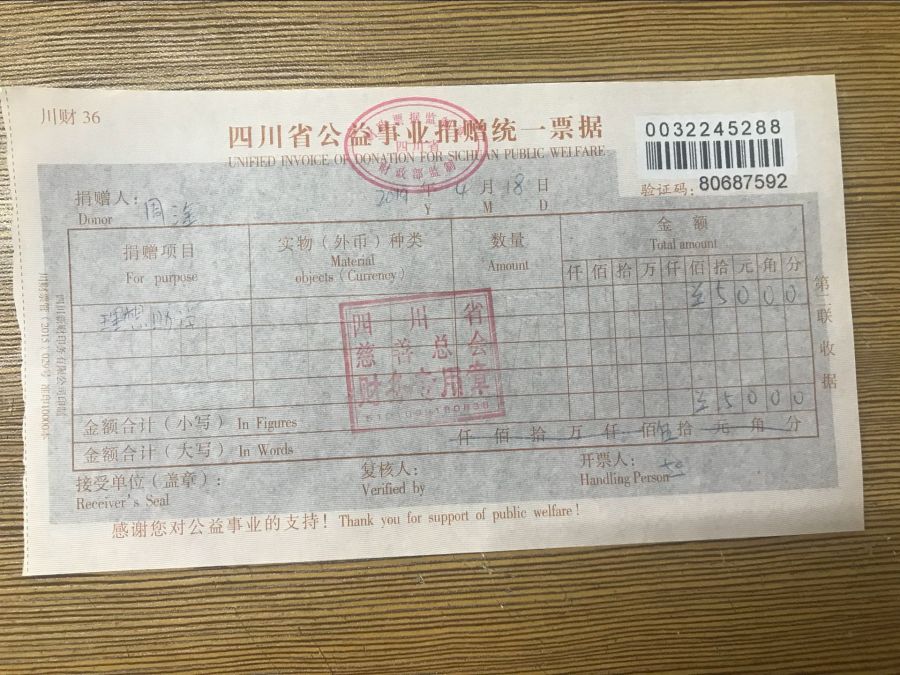 川财 36
四川省公益事业捐赠统一票据
UNIFIED INVOICE OF DONATION FOR SICHUAN PUBLIC WELFARE
四川省
财政部监制
0032245288
验证码: 80687592
捐赠人:
Donor
2019 年 4 月 18 日
Y M D
捐赠项目
For purpose
实物（外币）种类
Material
objects (Currency)
数量
Amount
金 额
Total amount
仟 佰 拾 万 仟 佰 拾 元 角 分
理想
5 0 0 0
四川省
慈善总会
财务专用章
5 0 0 0
金额合计（小写）In Figures
金额合计（大写）In Words
仟 佰 拾 万 仟 佰 伍拾 元 角 分
接受单位（盖章）:
Receiver's Seal
复核人:
Verified by
开票人:
Handling Person
感谢您对公益事业的支持! Thank you for support of public welfare!
第二联 收据